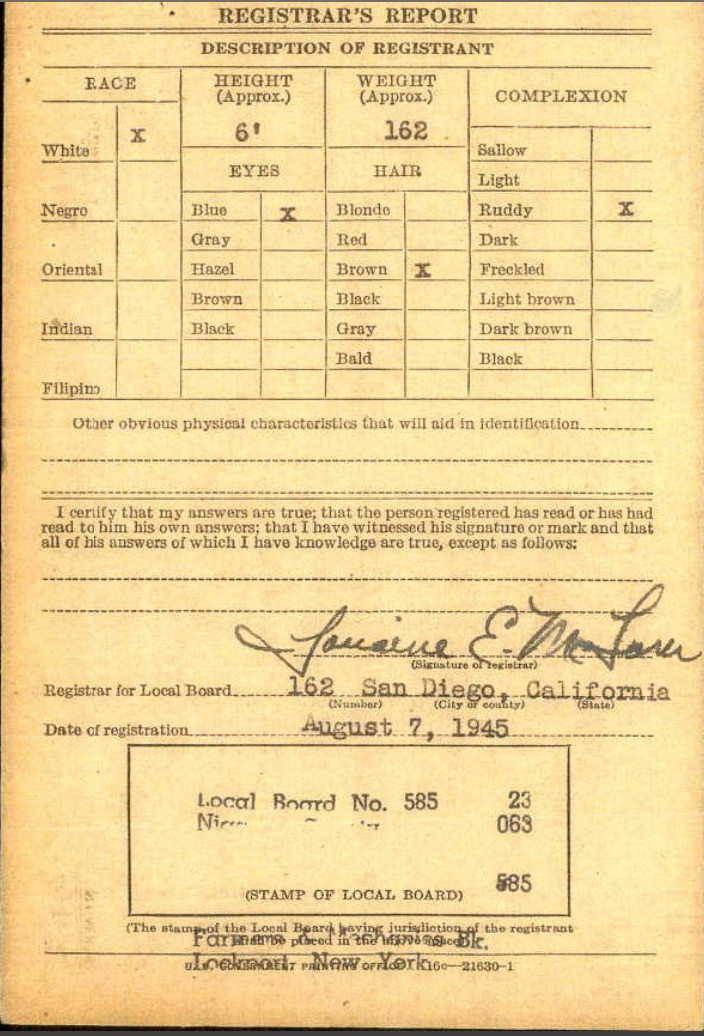 REGISTRAR'S REPORT
DESCRIPTION OF REGISTRANT
RACE
HEIGHT (Approx.)
WEIGHT (Approx.)
COMPLEXION
White X
6'
162
Sallow
EYES
HAIR
Light
Negro
Blue X
Blonde
Ruddy X
Gray
Red
Dark
Oriental
Hazel
Brown X
Freckled
Brown
Black
Light brown
Indian
Black
Gray
Dark brown
Bald
Black
Filipino
Other obvious physical characteristics that will aid in identification
I certify that my answers are true; that the person registered has read or has had
read to him his own answers; that I have witnessed his signature or mark and that
all of his answers of which I have knowledge are true, except as follows:
E.
(Signature of registrar)
Registrar for Local Board 162 San Diego, California
(Number) (City or county) (State)
Date of registration August 7, 1945
Local Board No. 585 23
063
585
(STAMP OF LOCAL BOARD)
(The stamp of the Local Board having jurisdiction of the registrant
shall be placed in the above space)
Farmers & Mechanics Bk.
U. S. GOVERNMENT PRINTING OFFICE 16c—21630-1
Lockport New York